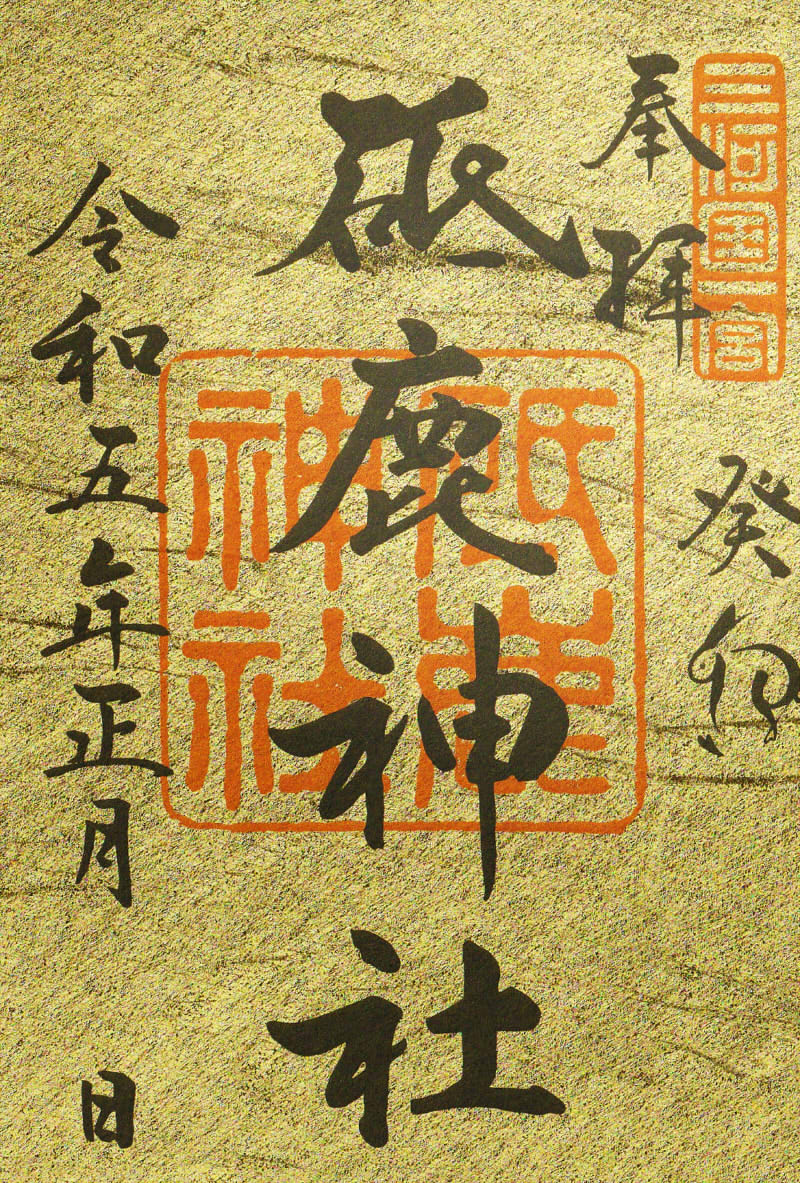 三河国一宮
奉拝
癸卯
砥鹿神社
砥鹿神社
令和五年正月 日